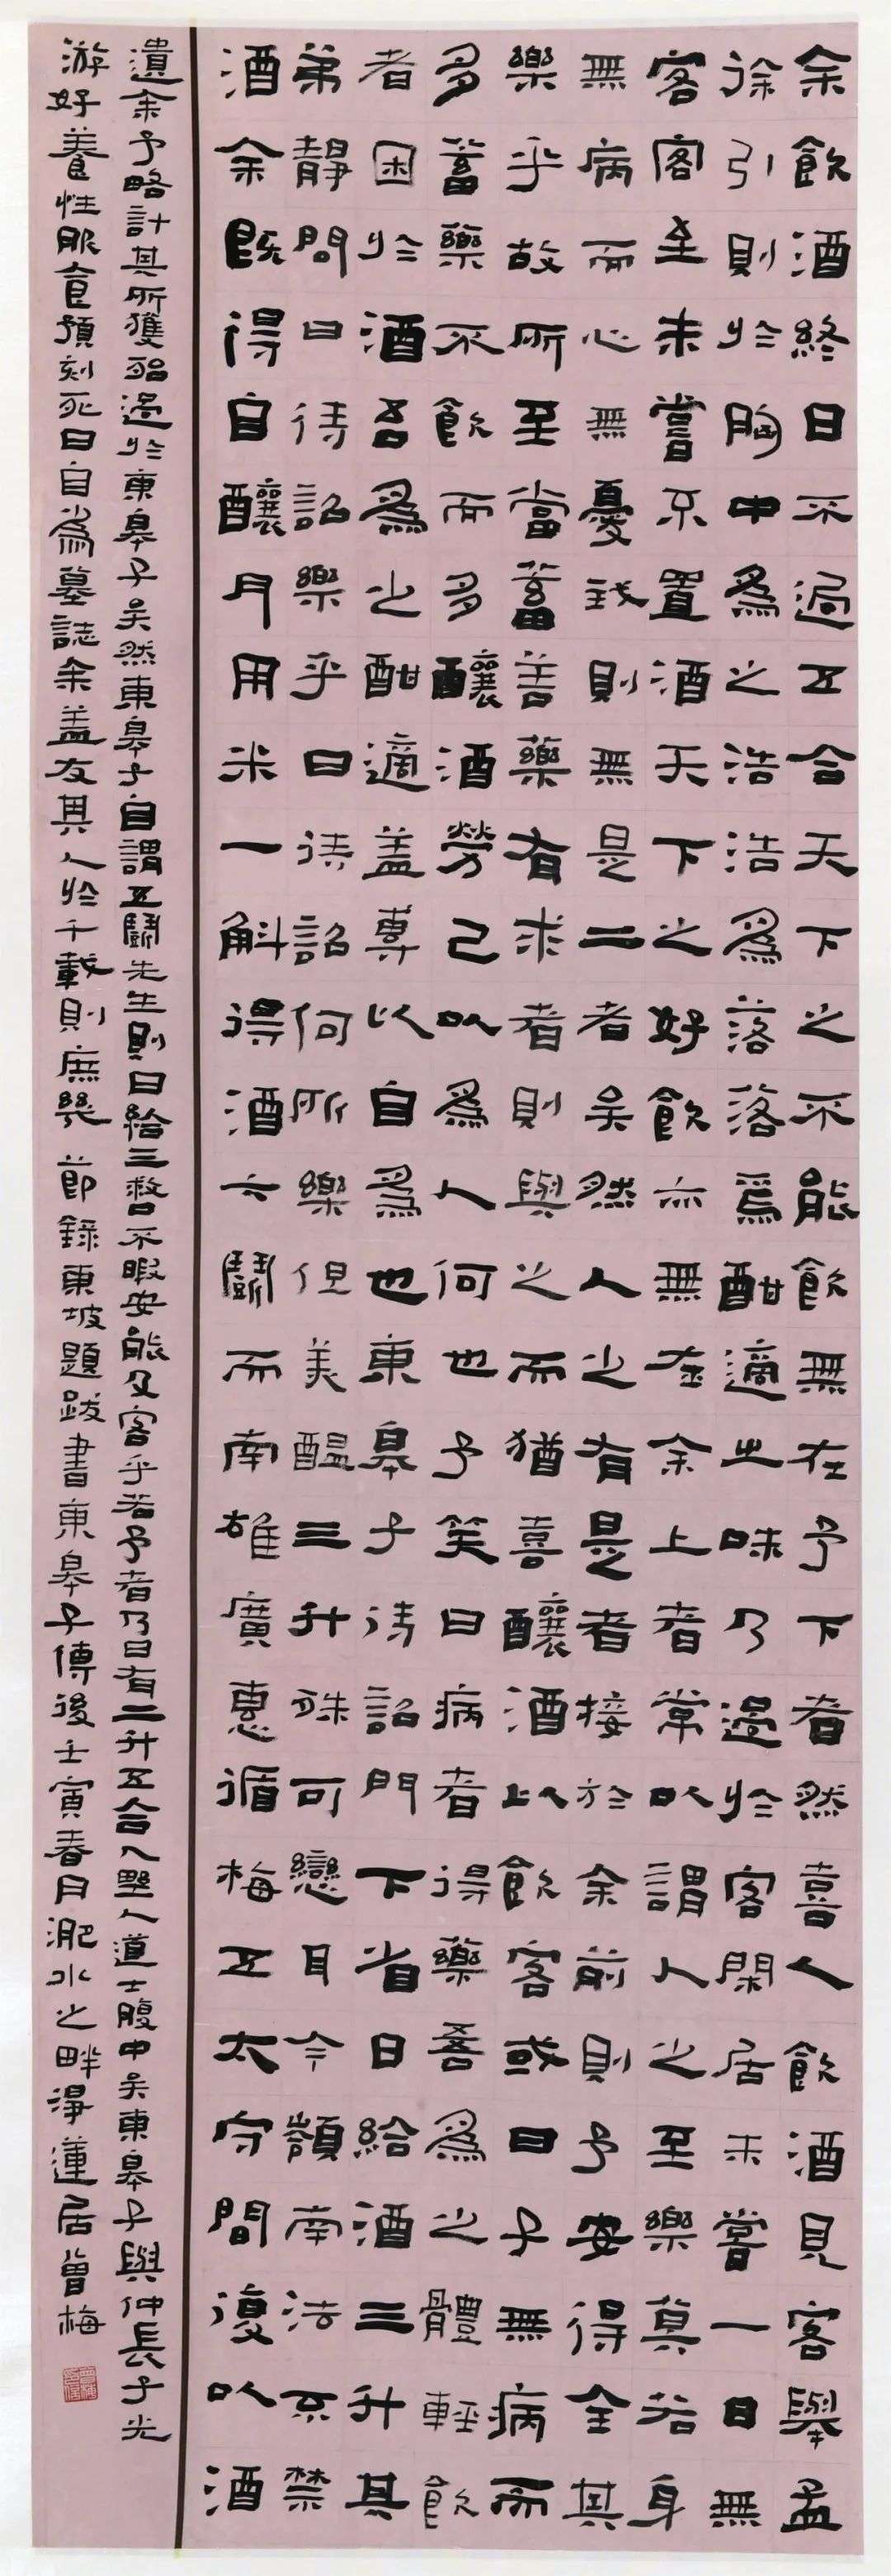 余飲酒終日不過五合天下之不能飲無在予下者然喜人飲酒見客舉盃
徐引則於胸中爲之浩浩爲落落焉酣適之味乃過於客閑居未嘗一日無
客客至未嘗不置酒天下之好飲亦無在余上者常以謂人之至樂莫若身
無病而心無憂我則無是二者矣然人之有是者接於余前則予安得全其
樂乎故所至當蓄善藥有求者則與之而猶喜釀酒以飲客或曰子無病而
多蓄藥不飲而多釀酒勞己以爲人何也予笑曰病者得藥吾爲之體輕飲
者困於酒吾爲之酣適蓋專以自爲也東皋子待詔門下省日給酒三升其
弟靜問曰待詔樂乎曰待詔何所樂但美醞三升殊可戀耳今嶺南法不禁
酒余既得自釀月用米一斛得酒六鬭而南雄廣惠循梅五太守間復以酒
遺余予略計其所獲殆過於東皋子矣然東皋子自謂五鬭先生則日給三救口不暇安能及客乎若予者乃日有二升五合入野人道士腹中矣東皋子與仲長子光
游好養性服食預刻死日自爲墓誌余蓋友其人於千載則庶幾 節錄東坡題跋書東皋子傳後壬寅春月淝水之畔淨蓮居曾梅